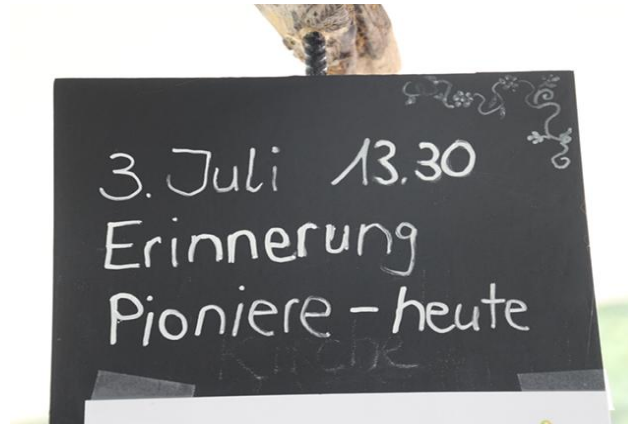 3. Juli 13.30
Erinnerung
Pioniere - heute
Kirche